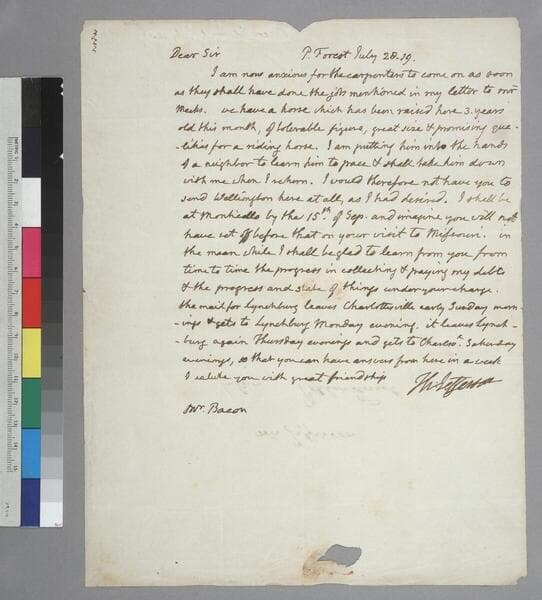 Dear Sir P. Forest July 28. 19.
I am now anxious for the carpenters to come on as soon
as they shall have done the jobs mentioned in my letter to mr
Meeks. we have a horse which has been raised here 3. years
old this month, of tolerable figure, great size & promising qua-
-lities for a riding horse. I am putting him into the hands
of a neighbor to learn him to pace & shall take him down
with me when I return. I would therefore not have you to
send Wellington here at all, as I had desired. I shall be
at Monticello by the 15th of Sep. and imagine you will not
have set off before that on your visit to Missouri. in
the mean while I shall be glad to learn from you from
time to time the progress in collecting & paying my debts
& the progress and state of things under your charge.
the mail for Lynchburg leaves Charlottesville early Sunday morn-
-ings & gets to Lynchburg Monday evening. it leaves Lynch-
-burg again Thursday evenings and gets to Charlesv. Saturday
evenings, so that you can have answers from here in a week
I salute you with great friendship
Th: Jefferson
Mr. Bacon